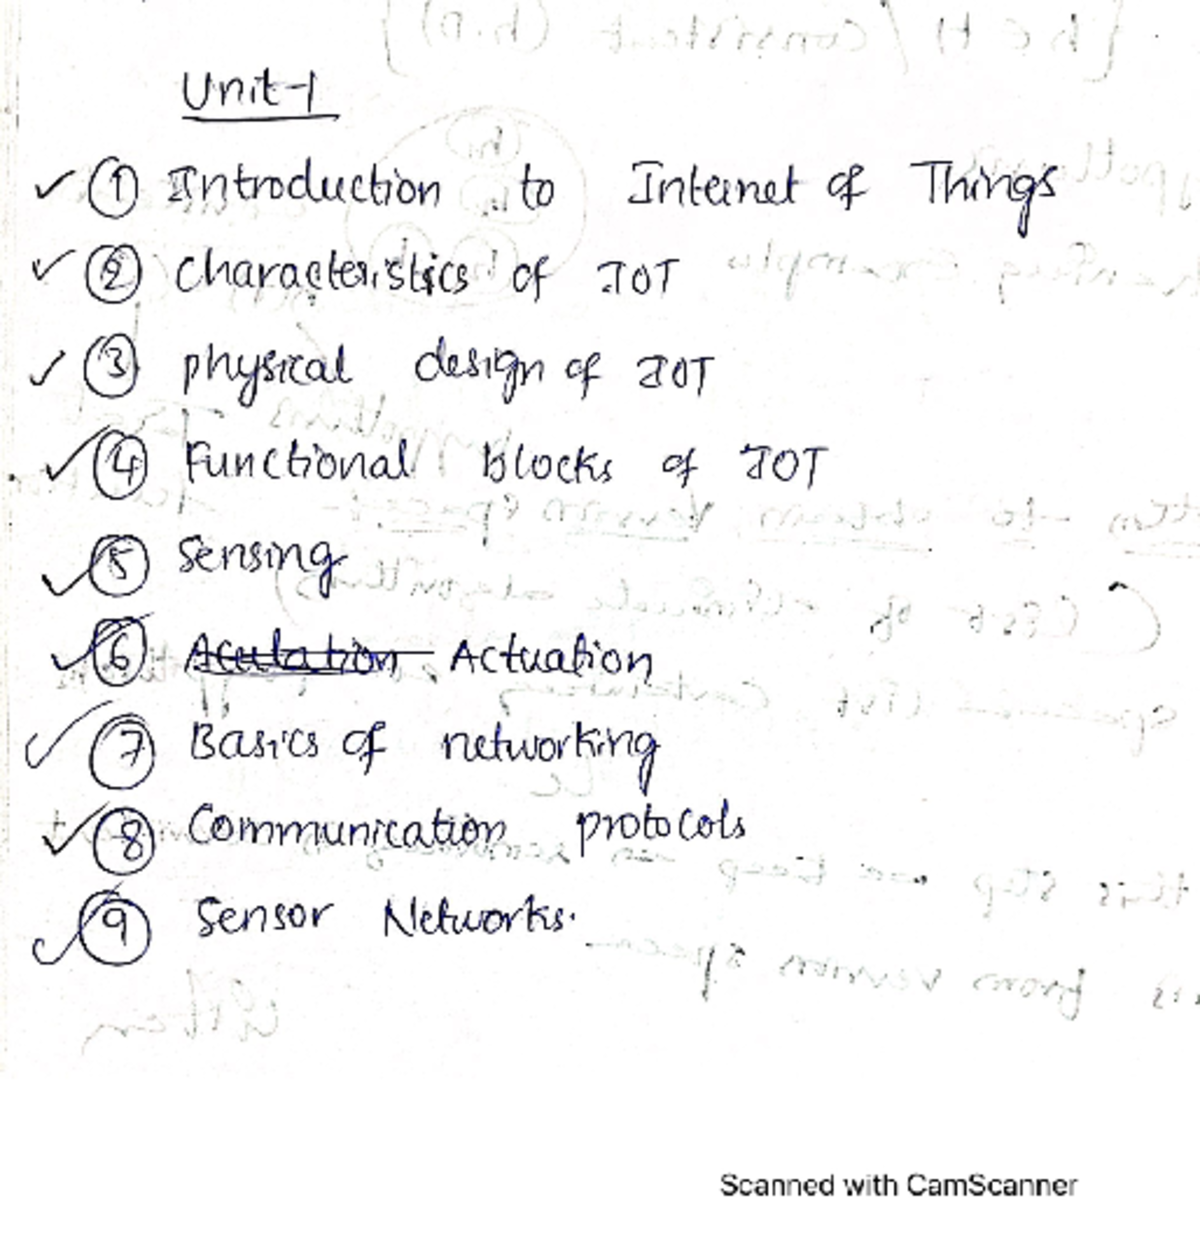 Unit-1
✓ ① Introduction to Internet of Things
✓ ② Characteristics of IOT
✓ ③ physical design of IOT
✓ ④ Functional blocks of IOT
✓ ⑤ Sensing
✓ ⑥ Actuation
✓ ⑦ Basics of networking
✓ ⑧ Communication protocols
✓ ⑨ Sensor Networks.
Scanned with CamScanner